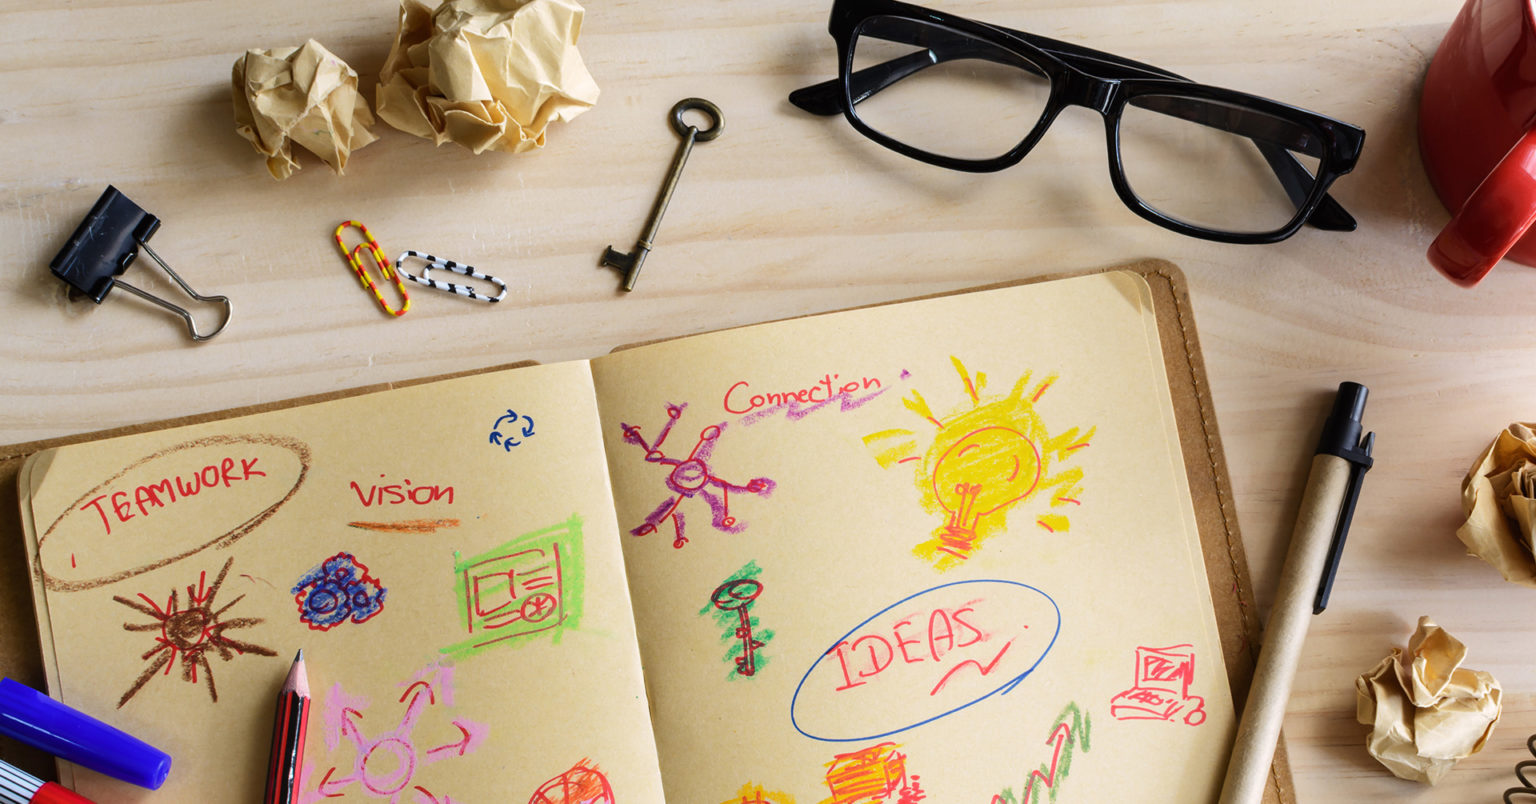 TEAMWORK
Vision
Connection
IDEAS